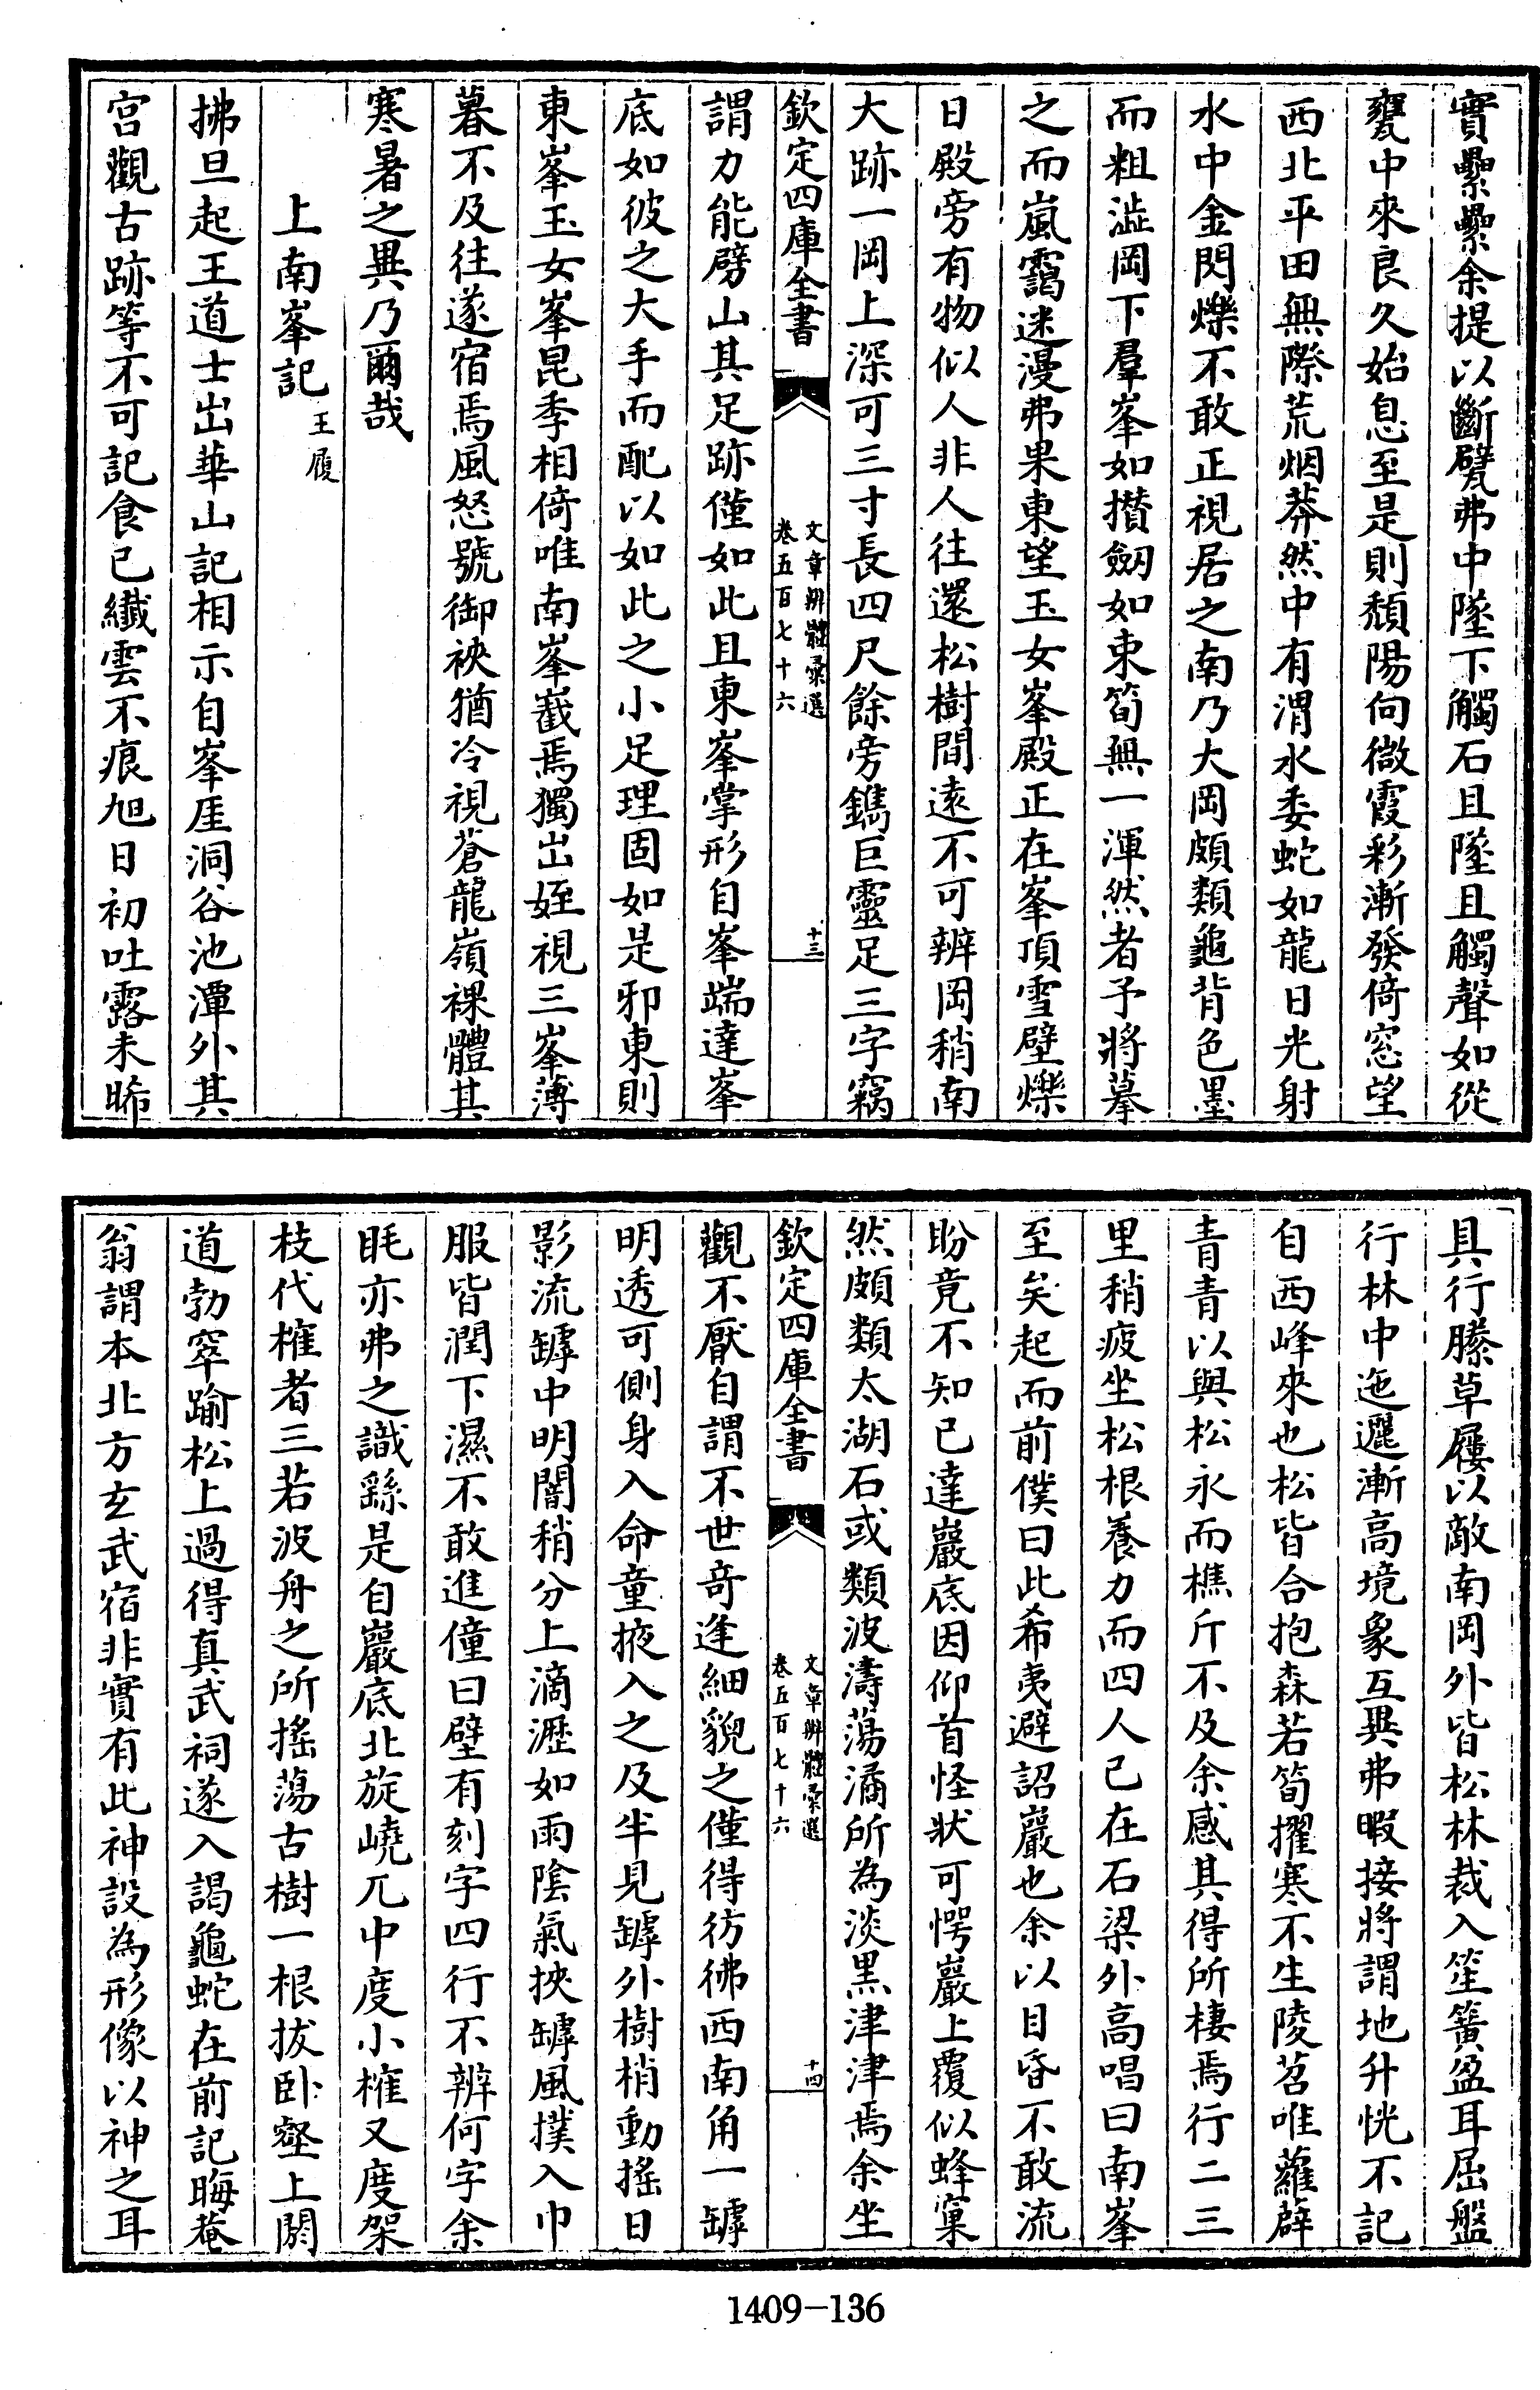 實纍纍余提以斷甓弗中墜下觸石且墜且觸聲如從
甕中來良久始息至是則頹陽向微霞彩漸發倚窓望
西北平田無際荒烟莽然中有渭水委蛇如龍日光射
水中金閃爍不敢正視居之南乃大岡頗類龜背色墨
而粗澁岡下羣峯如攢劒如束筍無一渾然者予將摹
之而嵐靄迷漫弗果東望玉女峯殿正在峯頂雪壁爍
日殿旁有物似人非人往還松樹間遠不可辨岡稍南
大跡一岡上深可三寸長四尺餘旁鐫巨靈足三字竊
欽定四庫全書
文章辨體彙選
卷五百七十六
十三
謂力能劈山其足跡僅如此且東峯掌形自峯端達峯
底如彼之大手而配以如此之小足理固如是邪東則
東峯玉女峯昆季相倚唯南峯巀焉獨出姪視三峯薄
暮不及往遂宿焉風怒號御裌猶冷視蒼龍嶺裸體其
寒暑之異乃爾哉
上南峯記
王履
拂旦起王道士出華山記相示自峯厓洞谷池潭外其
宫觀古跡等不可記食已纖雲不痕旭日初吐露未晞
具行縢草屨以敵南岡外皆松林裁入笙簧盈耳屈盤
行林中迤邐漸高境象互異弗暇接將謂地升恍不記
自西峰來也松皆合抱森若筍擢寒不生陵苕唯蘿薜
青青以與松永而樵斤不及余感其得所棲焉行二三
里稍疲坐松根養力而四人已在石梁外高唱曰南峯
至矣起而前僕曰此希夷避詔巖也余以目昏不敢流
盼竟不知已達巖底因仰首怪狀可愕巖上覆似蜂窠
然頗類太湖石或類波濤蕩潏所為淡黒津津焉余坐
欽定四庫全書
文章辨體彙選
卷五百七十六
十四
觀不厭自謂不世竒逢細貌之僅得彷彿西南角一罅
明透可側身入命童掖入之及半見罅外樹梢動搖日
影流罅中明闇稍分上滴瀝如雨陰氣挾罅風撲入巾
服皆潤下濕不敢進僮曰壁有刻字四行不辨何字余
眊亦弗之識繇是自巖底北旋嶢兀中度小榷又度架
枝代榷者三若波舟之所搖蕩古樹一根拔卧壑上閼
道勃窣踰松上過得真武祠遂入謁龜蛇在前記晦菴
翁謂本北方玄武宿非實有此神設為形像以神之耳
1409-136